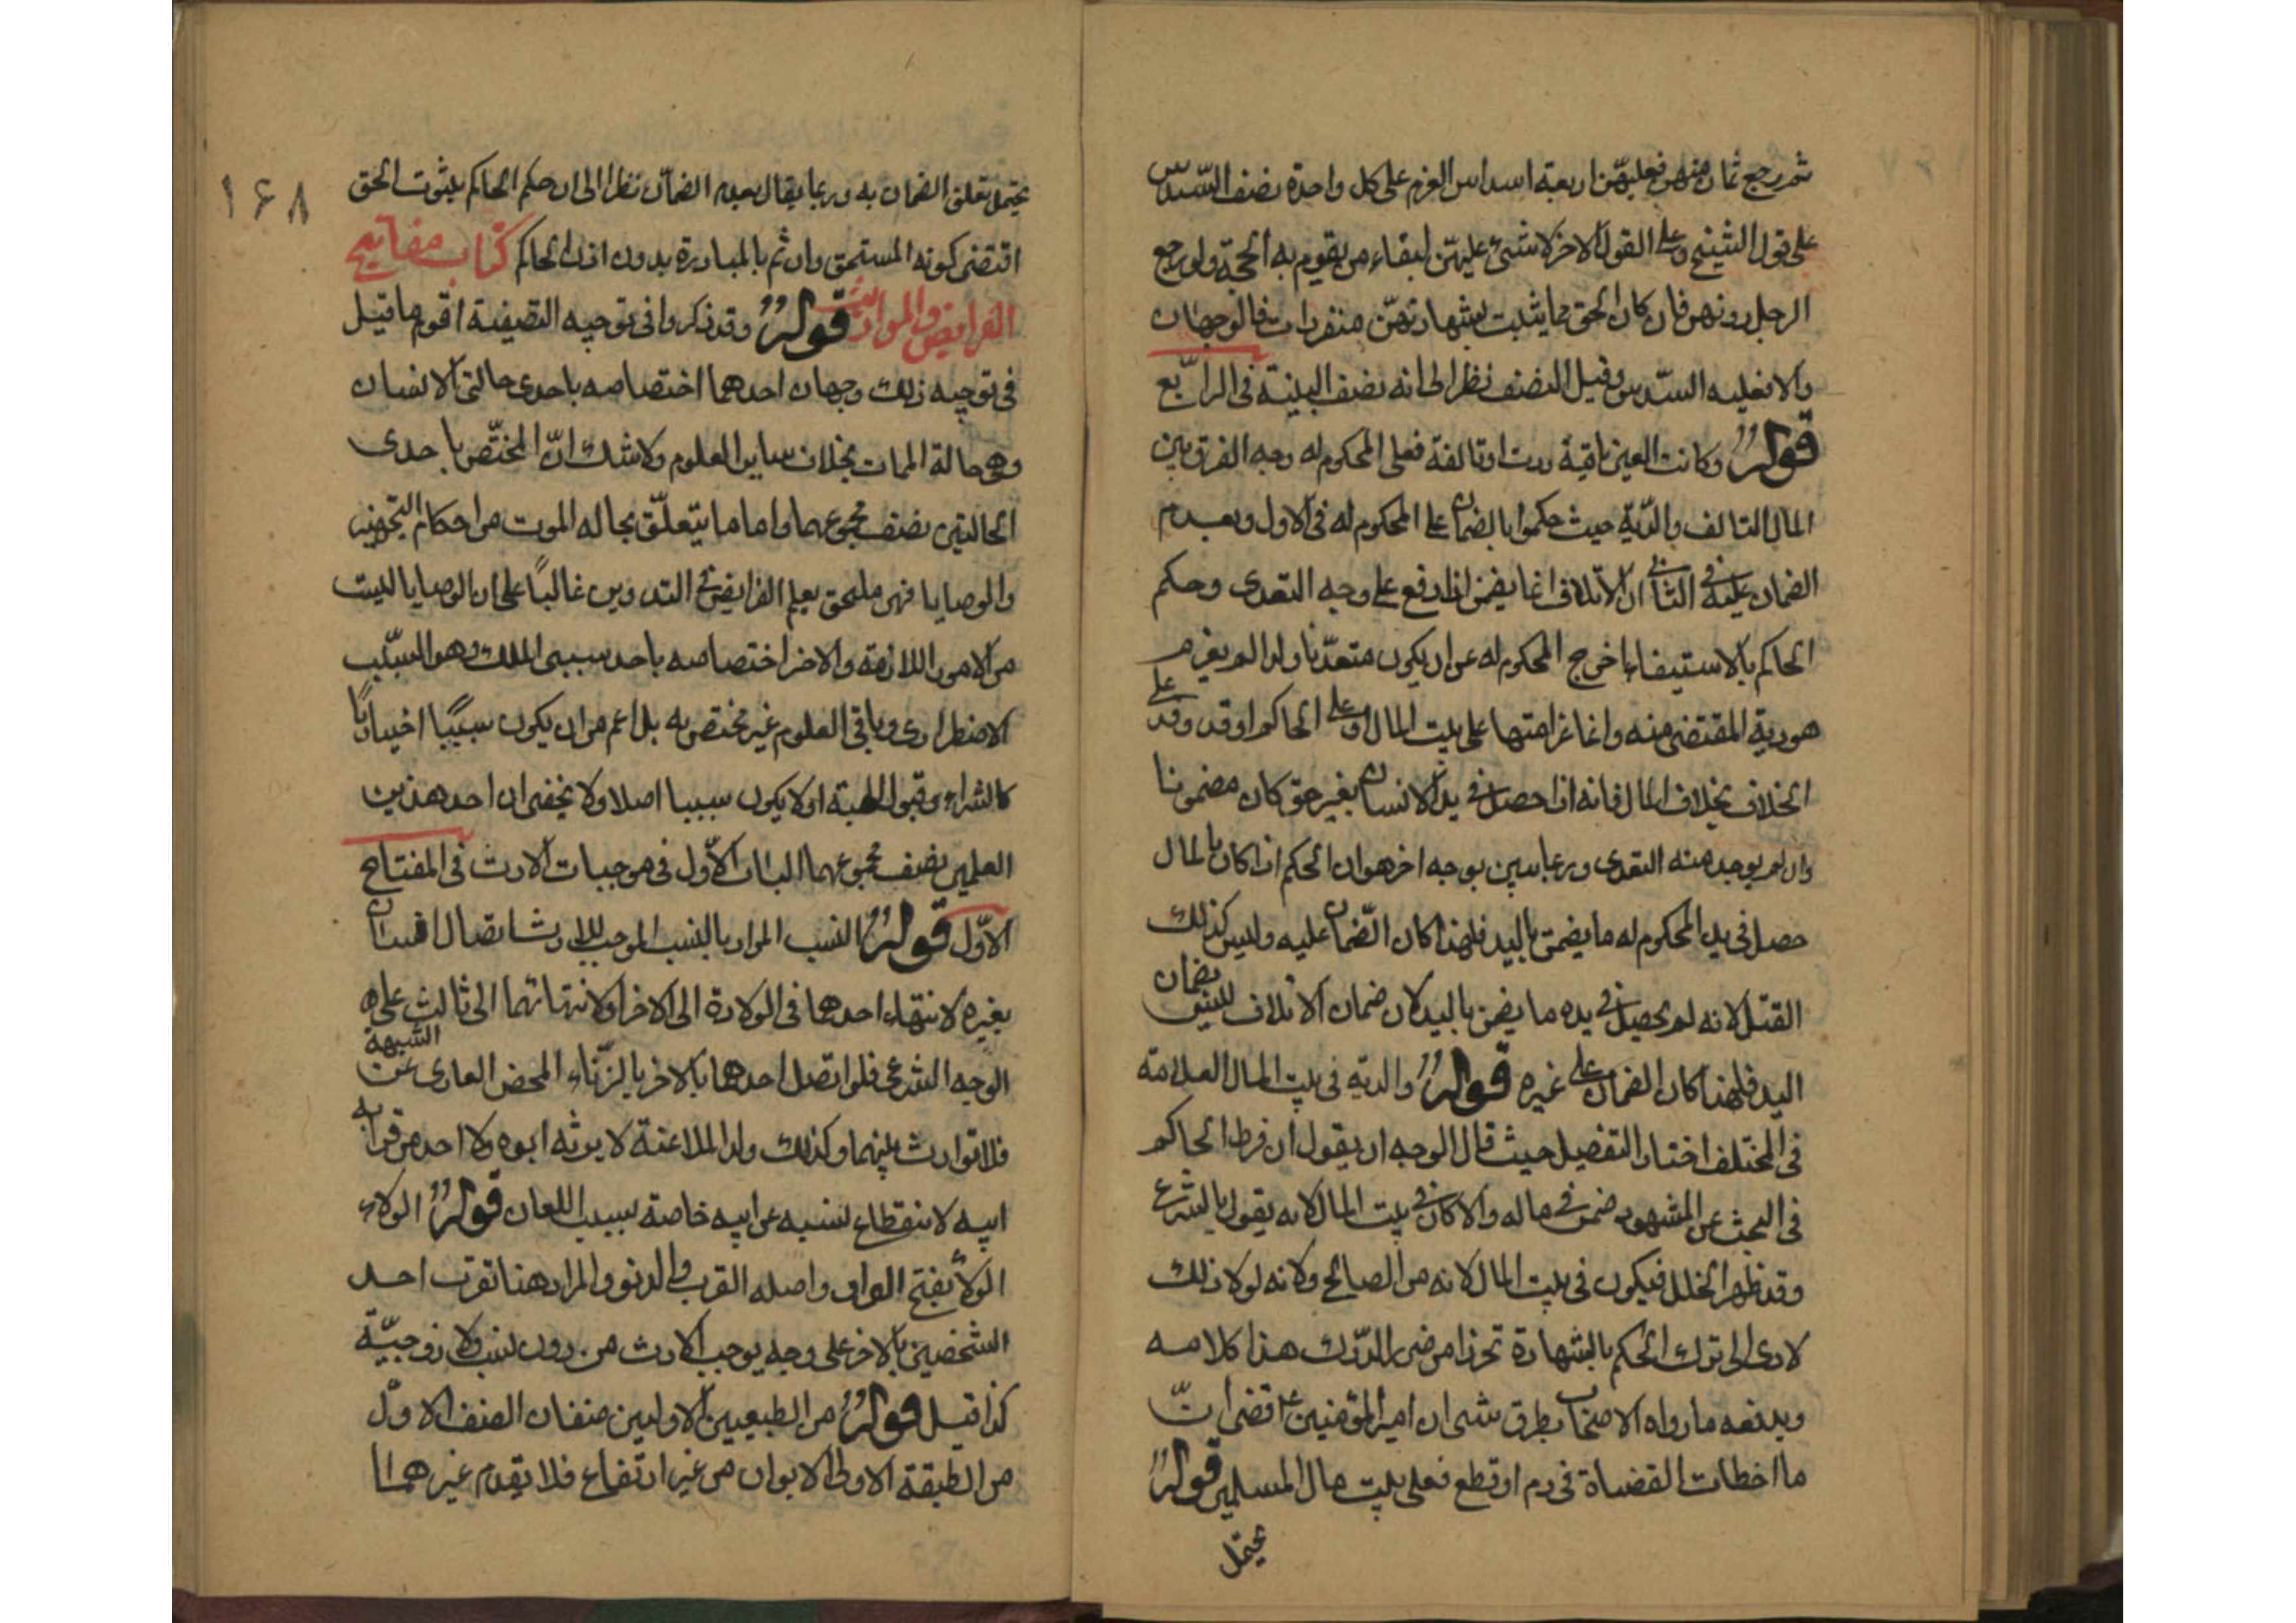 ثم رجع ثمان منهن فعليهنّ اربعة اسداس الغرم على كل واحدة نصف السّدس
على قول الشيخ وعلى القول الاخر لا شئ عليهنّ لبقاء من يقوم به الحجة ولو رجع
الرجل دونهن فان كان الحق مما يثبت بشهادتهنّ منفردات فالوجهان
والا فعليه السّدس وقيل النصف نظرا الى انه نصف البينة في الرابع
قوله وكانت العين باقية ردت او تالفة فعلى المحكوم له وجه الفرق بين
المال التالف والدّية حيث حكموا بالضمان على المحكوم له في الاول وبعدم
الضمان عليه في الثاني ان الاتلاف انما يضمن اذا وقع على وجه التعدى وحكم
الحاكم بالاستيفاء اخرج المحكوم له عن ان يكون متعدّيا ولو لم يغرم
هو دية المقتضى منه وانما غرامتها على بيت المال او على الحاكم او قد وقد على
الخلاف بخلاف المال فانه اذا حصل في يد الانسان بغير حق كان مضمونا
وان لم يوجد منه التعدى وربما يبين بوجه اخر هو ان الحكم اذا كان بالمال
حصل في يد المحكوم له ما يضمن باليد فلهذا كان الضّمان عليه وليس كذلك
القتل لانه لم يحصل في يده ما يضمن باليد لان ضمان الاتلاف ليس بضمان
اليد فلهذا كان الضمان على غيره قوله والدية في بيت المال العلامة
في المختلف اختار التفصيل حيث قال الوجه ان يقول ان فرط الحاكم
في البحث عن الشهود ضمن في ماله والا كان في بيت المال لانه يقول بالشرع
وقد ظهر الخلل فيكون في بيت المال لانه من المصالح ولانه لولا ذلك
لادى الى ترك الحكم بالشهادة تحرزا من ضرر الدّرك هذا كلامه
ويدفعه ما رواه الاصحاب بطرق شتى ان امير المؤمنين ع قضى انّ
ما اخطات القضاة في دم او قطع فعلى بيت مال المسلمين قوله
يحتمل
١۶٨
يحتمل تعلق الضمان به وربما يقال بعدم الضمان نظرا الى ان حكم الحاكم بثبوت الحق
اقتضى كونه المستحق وان ثم بالمبادرة بدون اذن الحاكم كتاب مفاتيح
الفرايض والمواريث قوله وقد ذكروا في توجيه التصيفية اقوم ما قيل
في توجيه ذلك وجهان احدهما اختصاصه باحدى حالتى الانسان
وهى حالة الممات بخلاف ساير العلوم ولا شك انّ المختّص باحدى
الحالتين نصف مجموعهما واما ما يتعلّق بحاله الموت من احكام التجهيز
والوصايا فهى ملحق بعلم الفرايض في التدوين غالبًا على ان الوصايا ليست
من الامور اللازمة والاخر اختصاصه باحد سببى الملك وهو السبّب
الاضطرارى وباقى العلوم غير مختص به بل اعم من ان يكون سببًا اختياريًا
كالشراء وقبول الهبة او لا يكون سببا اصلا ولا يخفى ان احد هذين
العلمين نصف مجموعهما الباب الاّول في موجبات الارث في المفتاح
الاوّل قوله النسب المراد بالنسب الموجب للارث اتصال انسان
بغيره لانتهاء احدهما في الولادة الى الاخر او لانتهائهما الى ثالث على
الوجه الشرعى فلو اتصل احدهما بالاخر بالزّناء المحض العارى عن الشبهة
فلا توارث بينهما وكذلك ولد الملاعنة لا يرثه ابوه ولا احد من قرابه
ابيه لانقطاع نسبه عن ابيه خاصة بسبب اللعان قوله الولاء
الولاء بفتح الواو واصله القرب والدنو والمراد هنا تقرب احد
الشخصين بالاخر على وجه يوجب الارث من دون نسب ولا زوجيّة
كذا قيل قوله من الطبيعيين الاوليين صنفان الصنف الاوّل
من الطبقة الاولى الابوان من غير ارتفاع فلا يقدم غيرهما